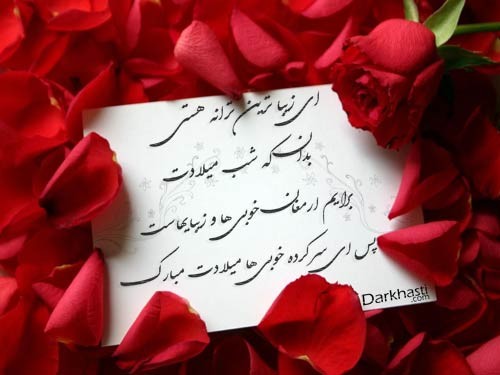 ای زیباترین ترانه هستی
بدان که شب میلادت
برایم ارمغان خوبی ها و زیبایهاست
پس ای سرکرده خوبی ها میلادت مبارک
Darkhasti
.com